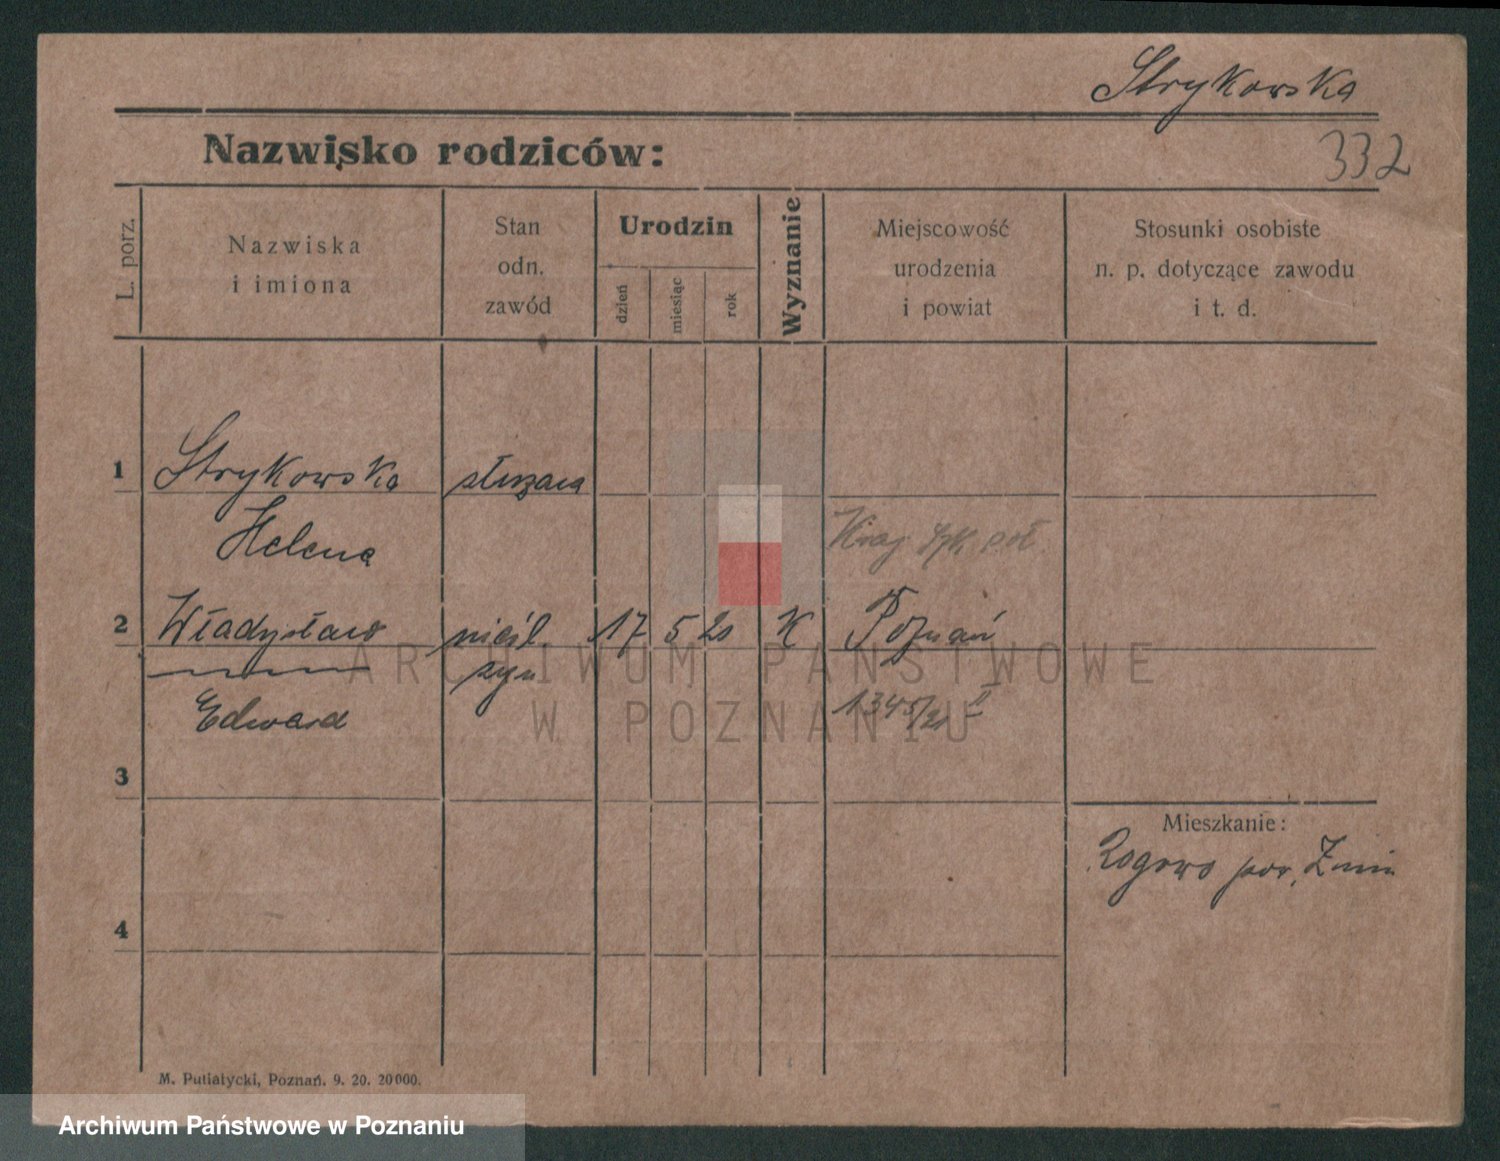 Strykowska
Nazwisko rodziców:
332
L. porz.
Nazwiska
i imiona
Stan
odn.
zawód
Urodzin
dzień
miesiąc
rok
Wyznanie
Miejscowość
urodzenia
i powiat
Stosunki osobiste
n. p. dotyczące zawodu
i t. d.
1 Strykowska służąca
Helena
2 Władysław nieśl. 17 5 20 K Poznań
syn
Edward 1345/21 II
3
Mieszkanie:
Rogowo pow. Żnin
4
M. Putiatycki, Poznań. 9. 20. 20000.
ARCHIWUM PAŃSTWOWE
W POZNANIU
Archiwum Państwowe w Poznaniu